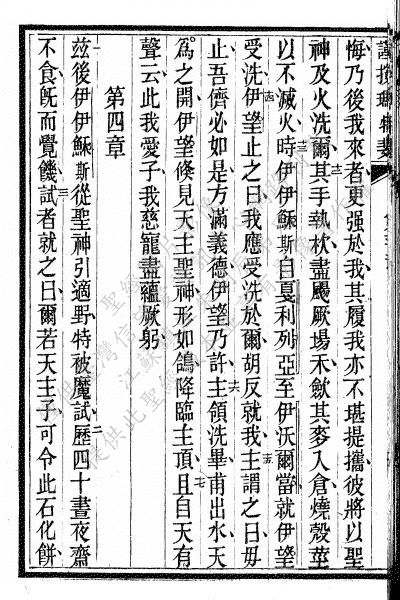 悔乃後我來者更强於我其履我亦不堪提攜彼將以聖
神及火洗爾其手執杴盡颺厥場禾歛其麥入倉燒殻莖
以不滅火時伊伊穌斯自戛利列亞至伊沃爾當就伊望
受洗伊望止之曰我應受洗於爾胡反就我主謂之曰毋
止吾儕必如是方滿義德伊望乃許主領洗畢甫出水天
爲之開伊望倐見天主聖神形如鴿降臨主頂且自天有
聲云此我愛子我慈寵盡蘊厥躬
第四章
茲後伊伊穌斯從聖神引適野特被魔試歷四十晝夜齋
不食旣而覺饑試者就之曰爾若天主子可令此石化餅